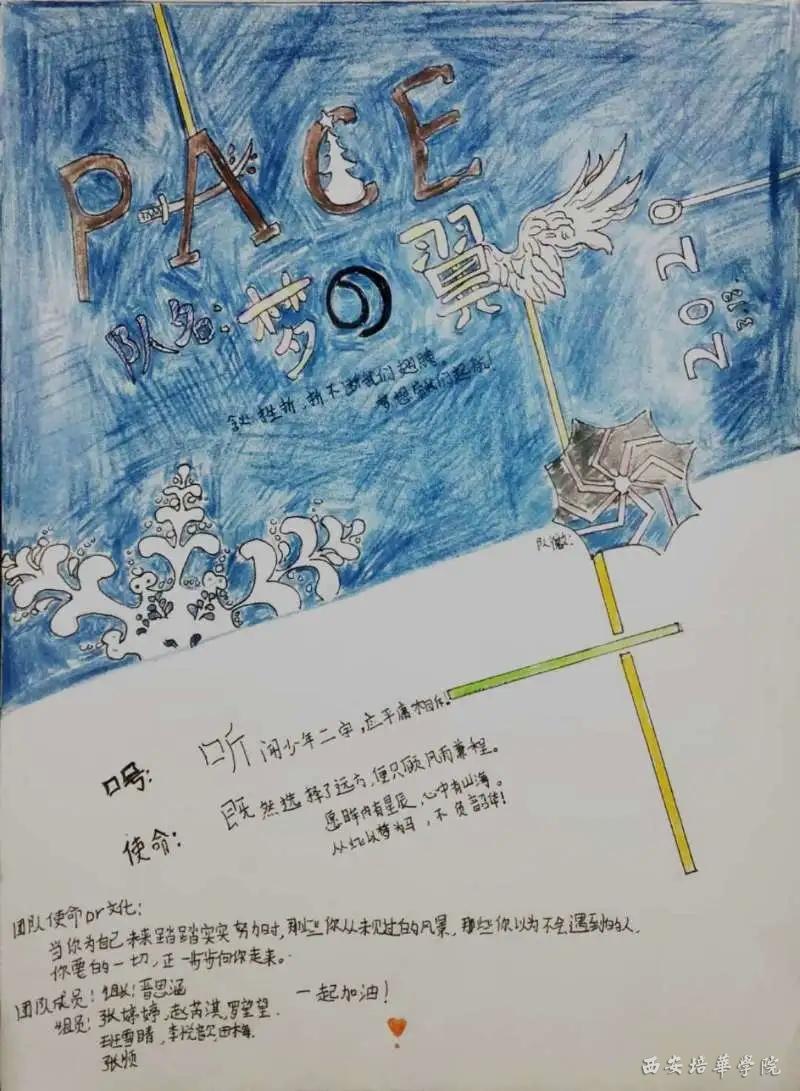 PACE
队名:梦の翼
2020
挫折,折不断我们翅膀
梦想 我们起航!
队徽:
口号: 听闻少年二字,应平庸相斥!
使命: 既然选择了远方,便只顾风雨兼程。
愿眸内有星辰,心中有山海。
从此以梦为马,不负韶华!
团队使命or文化:
当你为自己未来踏踏实实努力时,那些你从未见过的风景,那些你以为不会遇到的人,
你要的一切,正一步步向你走来。
团队成员:组长:晋思涵
组员:张婷婷,赵芮淇,罗望望.
班雪晴,李悦歆,田梅.
张顺
一起加油!
西安培華学院